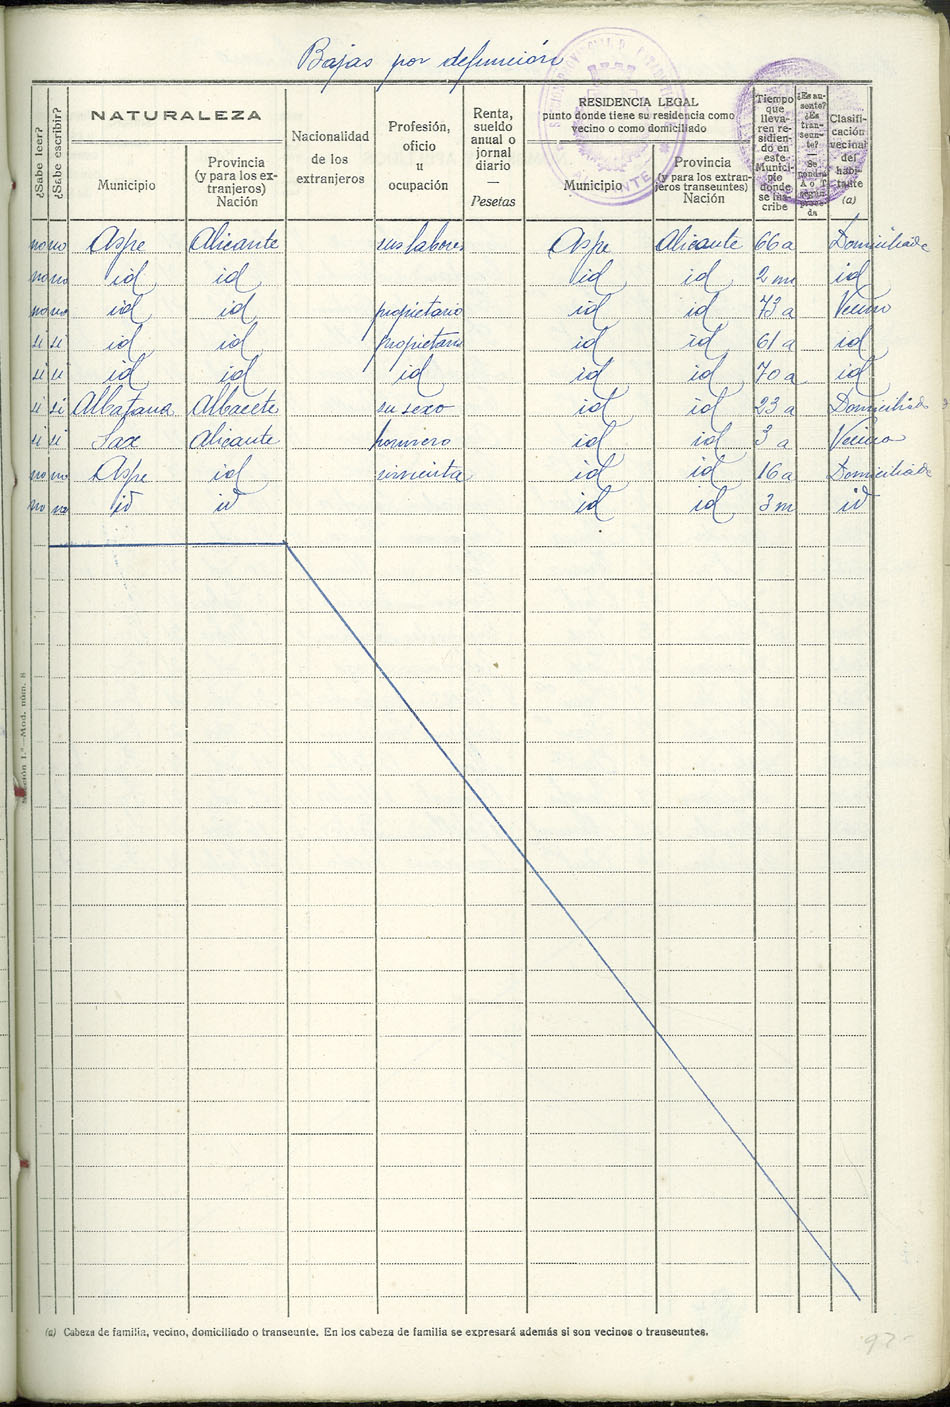 Bajas por defunción
¿Sabe leer?
¿Sabe escribir?
NATURALEZA
Municipio
Provincia
(y para los ex-
tranjeros)
Nación
Nacionalidad
de los
extranjeros
Profesión,
oficio
u
ocupación
Renta,
sueldo
anual o
jornal
diario
—
Pesetas
RESIDENCIA LEGAL
punto donde tiene su residencia como
vecino o como domiciliado
Municipio
Provincia
(y para los extran-
jeros transeuntes)
Nación
Tiempo
que
lleva-
ren re-
sidien-
do en
este
Munici-
pio
donde
se ins-
cribe
¿Es au-
sente?
¿Es
tran-
seun-
te?
—
Se
pondrá
A o T
según
proce-
da
Clasifi-
cación
vecinal
del
habi-
tante
(a)
no no Aspe Alicante sus labores Aspe Alicante 66 a Domiciliado
no no id id id id 2 m id
no no id id propietario id id 73 a Vecino
si si id id propietario id id 61 a id
si si id id id id id 70 a id
si si Albatana Albacete su sexo id id 23 a Domiciliado
si si Sax Alicante id id 3 a Vecino
no no Aspe id sirvienta id id 16 a Domiciliado
no no id id id id 3 m id
Sección 1.ª—Mod. núm. 8
(a) Cabeza de familia, vecino, domiciliado o transeunte. En los cabeza de familia se expresará además si son vecinos o transeuntes.
92